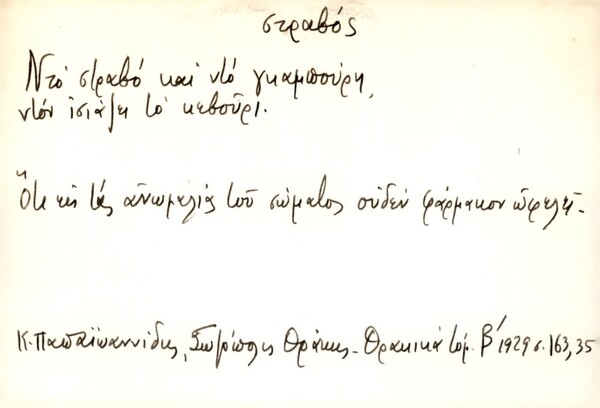 στραβός
Ντό στραβό καί ντό γκαμπούρη,
ντόν ἰσιάζει τό κιβοῦρι.
Ὅτι εἰς τάς ἀνωμαλίας τοῦ σώματος οὐδέν φάρμακον ὠφελεῖ.
Κ. Παπαϊωαννίδης, Σωζόπολις Θράκης - Θρακικά τόμ. Β΄ 1929 σ. 163, 35